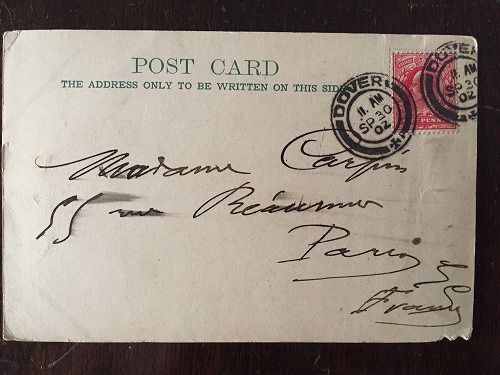 POST CARD
THE ADDRESS ONLY TO BE WRITTEN ON THIS SIDE
DOVER
11. AM
SP 30
02
DOVER
11. AM
SP 30
02
Madame
55 rue Réaumur
Paris
France